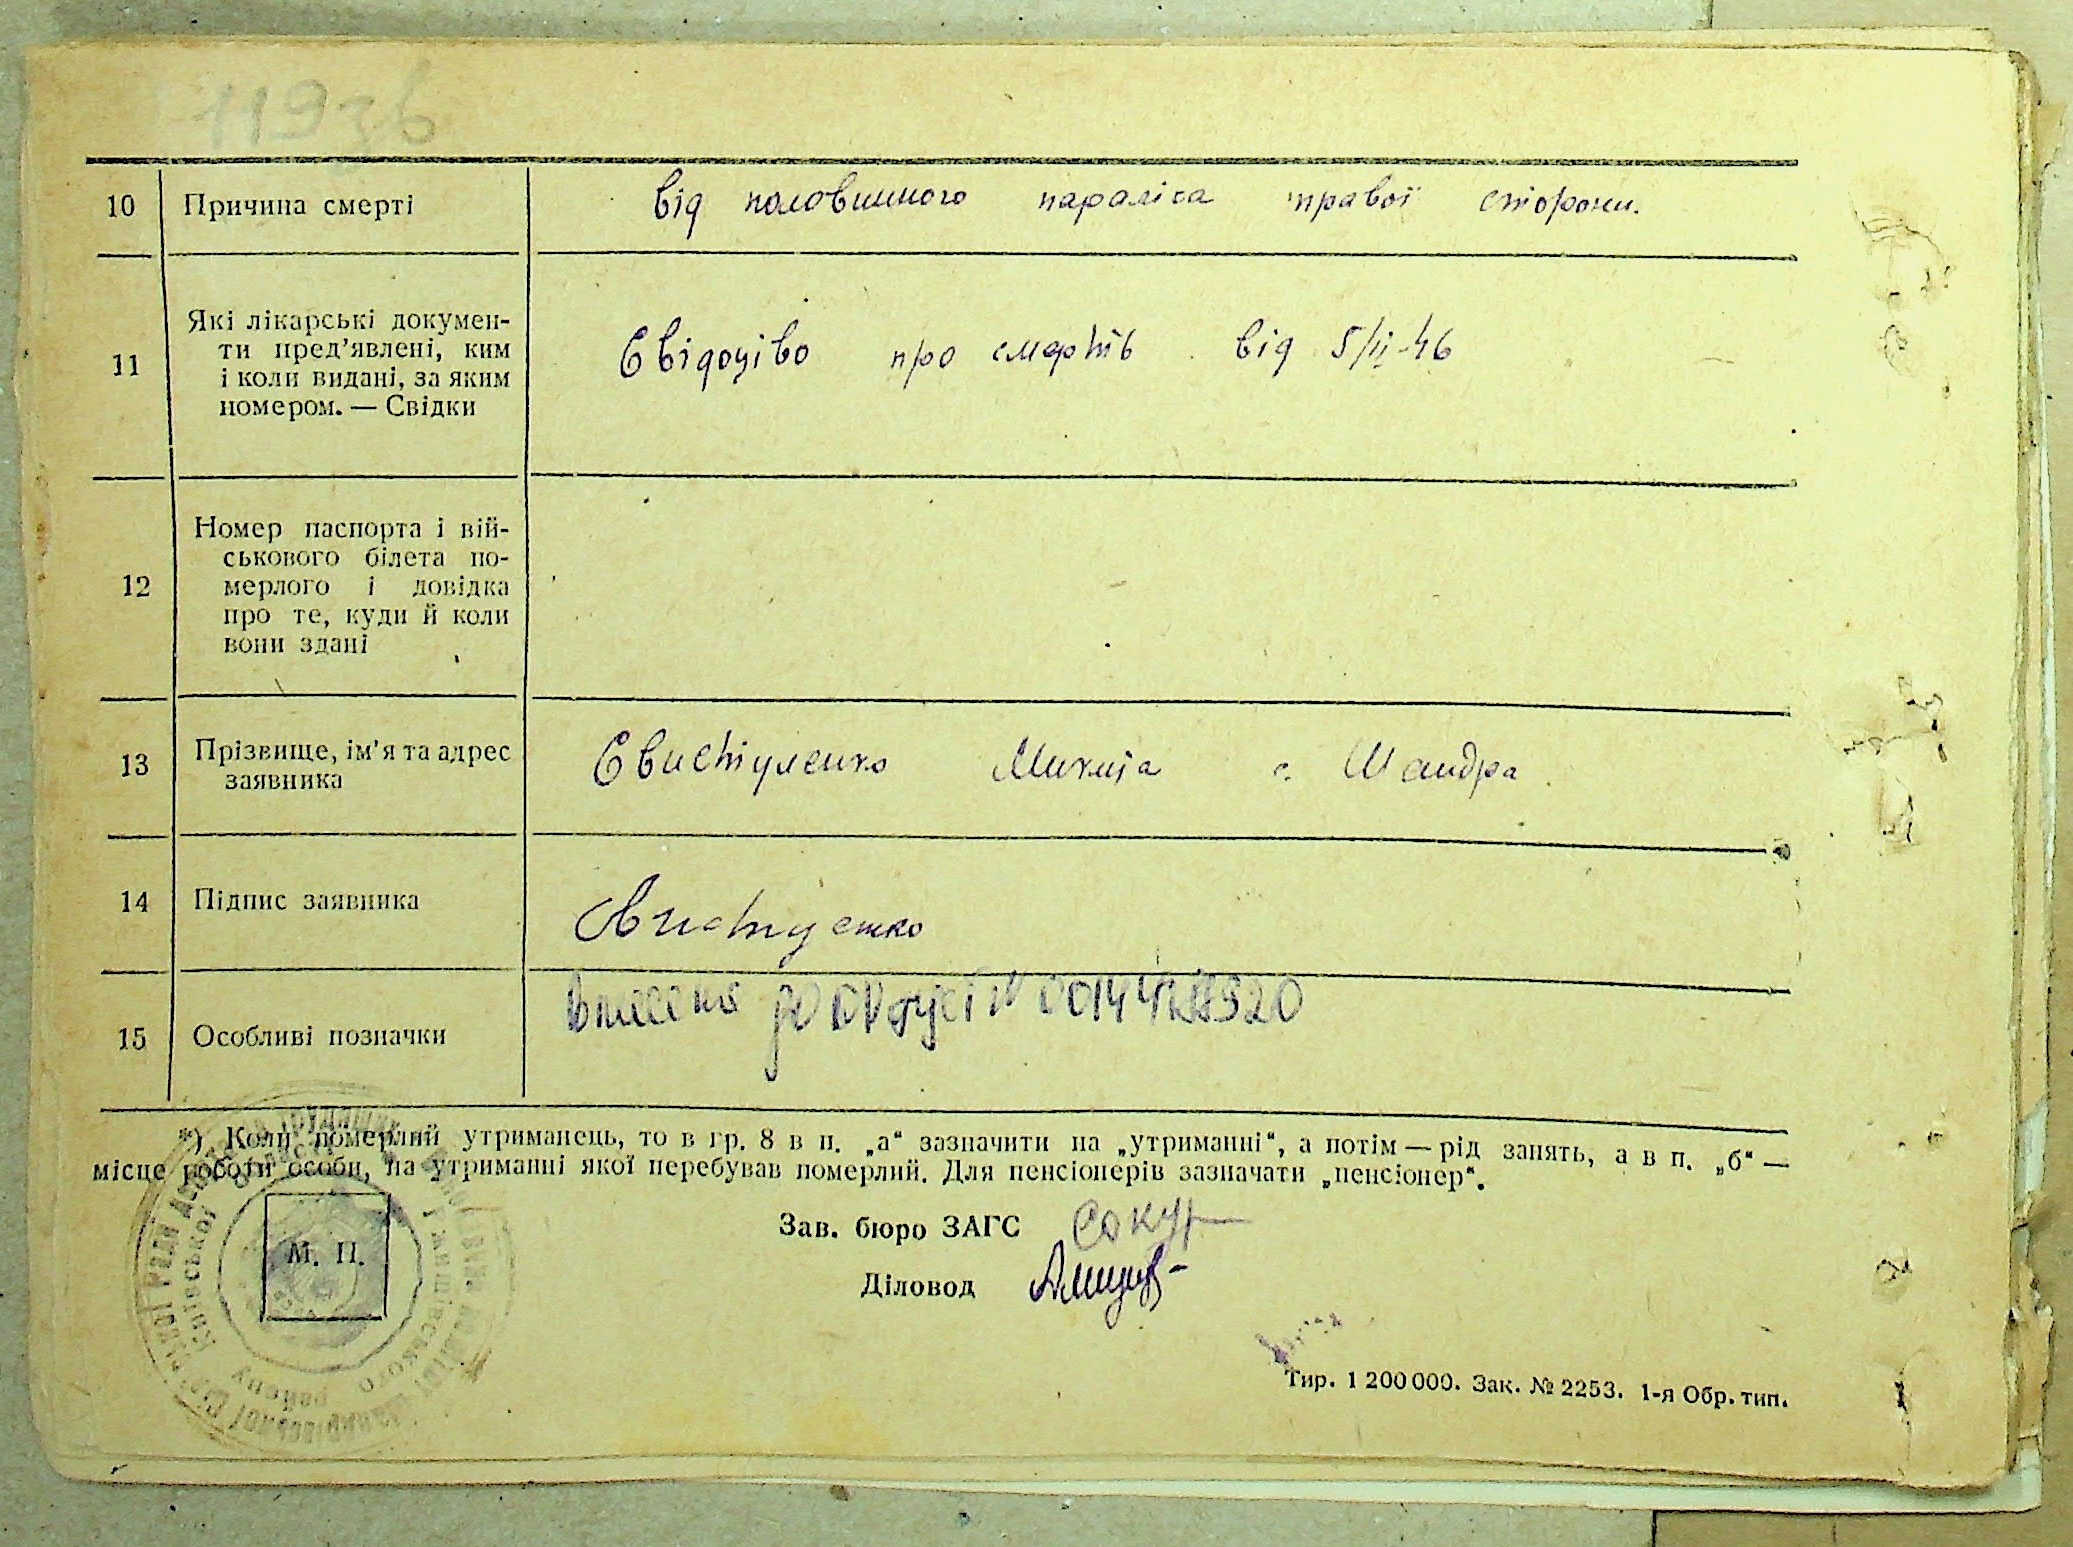 119зв
10 Причина смерті від половинного параліса правої сторони.
11 Які лікарські документи
Які лікарські докумен-
ти пред'явлені, ким
і коли видані, за яким
номером. — Свідки
Свідоцтво про смертть від 5/II-46
12
Номер паспорта і вій-
ськового білета по-
мерлого і довідка
про те, куди й коли
вони здані
13
Прізвище, ім'я та адрес
заявника
Свистуленко Микита с. Шандра
14 Підпис заявника
15 Особливі позначки Внесено до
*) Коли померлий утриманець, то в гр. 8 в п. „а“ зазначити на „утриманні“, а потім — рід занять, а в п. „б“ —
місце роботи особи, на утриманні якої перебував померлий. Для пенсіонерів зазначати „пенсіонер“.
М. П.
Київської
району
Зав. бюро ЗАГС Сокур
Діловод
Тир. 1 200 000. Зак. № 2253. 1-я Обр. тип.